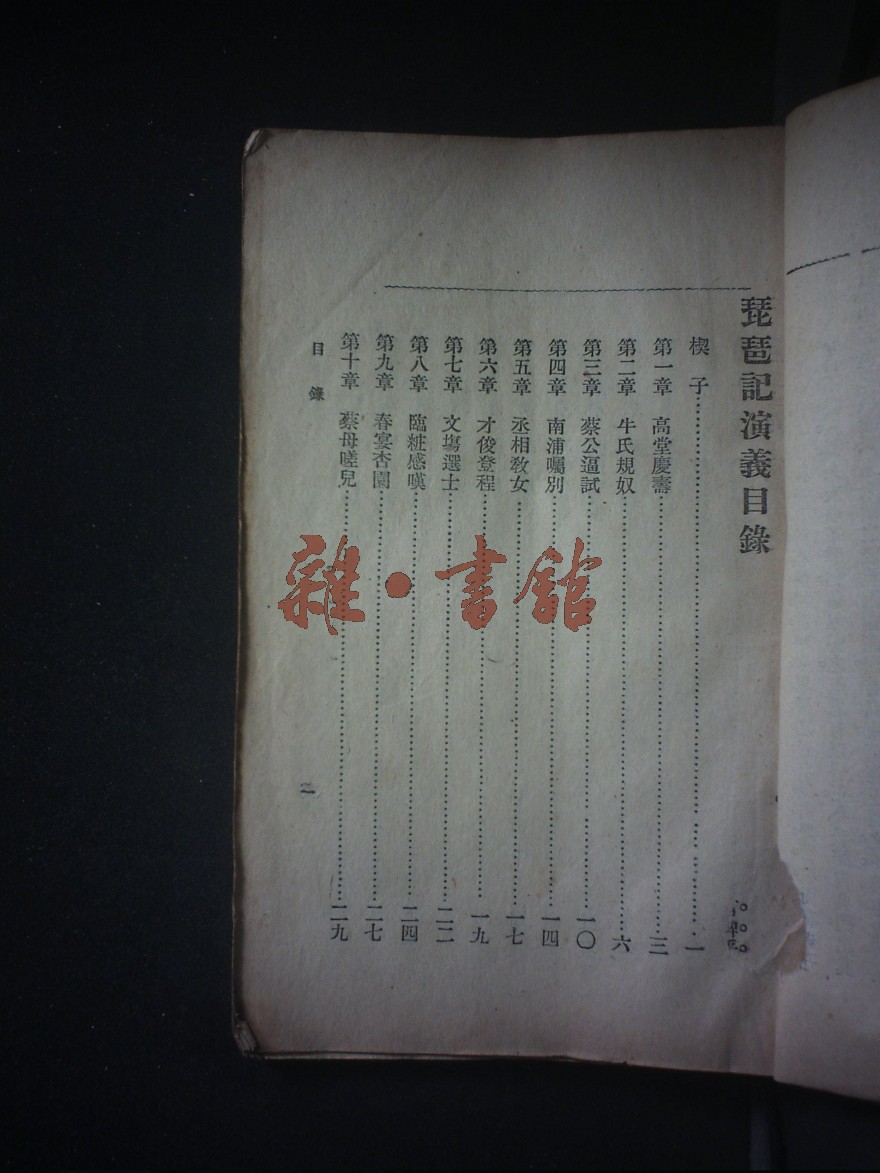 琵琶記演義目錄
楔子……一
第一章 高堂慶壽……三
第二章 牛氏規奴……六
第三章 蔡公逼試……一〇
第四章 南浦囑別……一四
第五章 丞相敎女……一七
第六章 才俊登程……一九
第七章 文塲選士……二二
第八章 臨粧感嘆……二四
第九章 春宴杏園……二七
第十章 蔡母嗟兒……二九
目錄
二
雜·書館